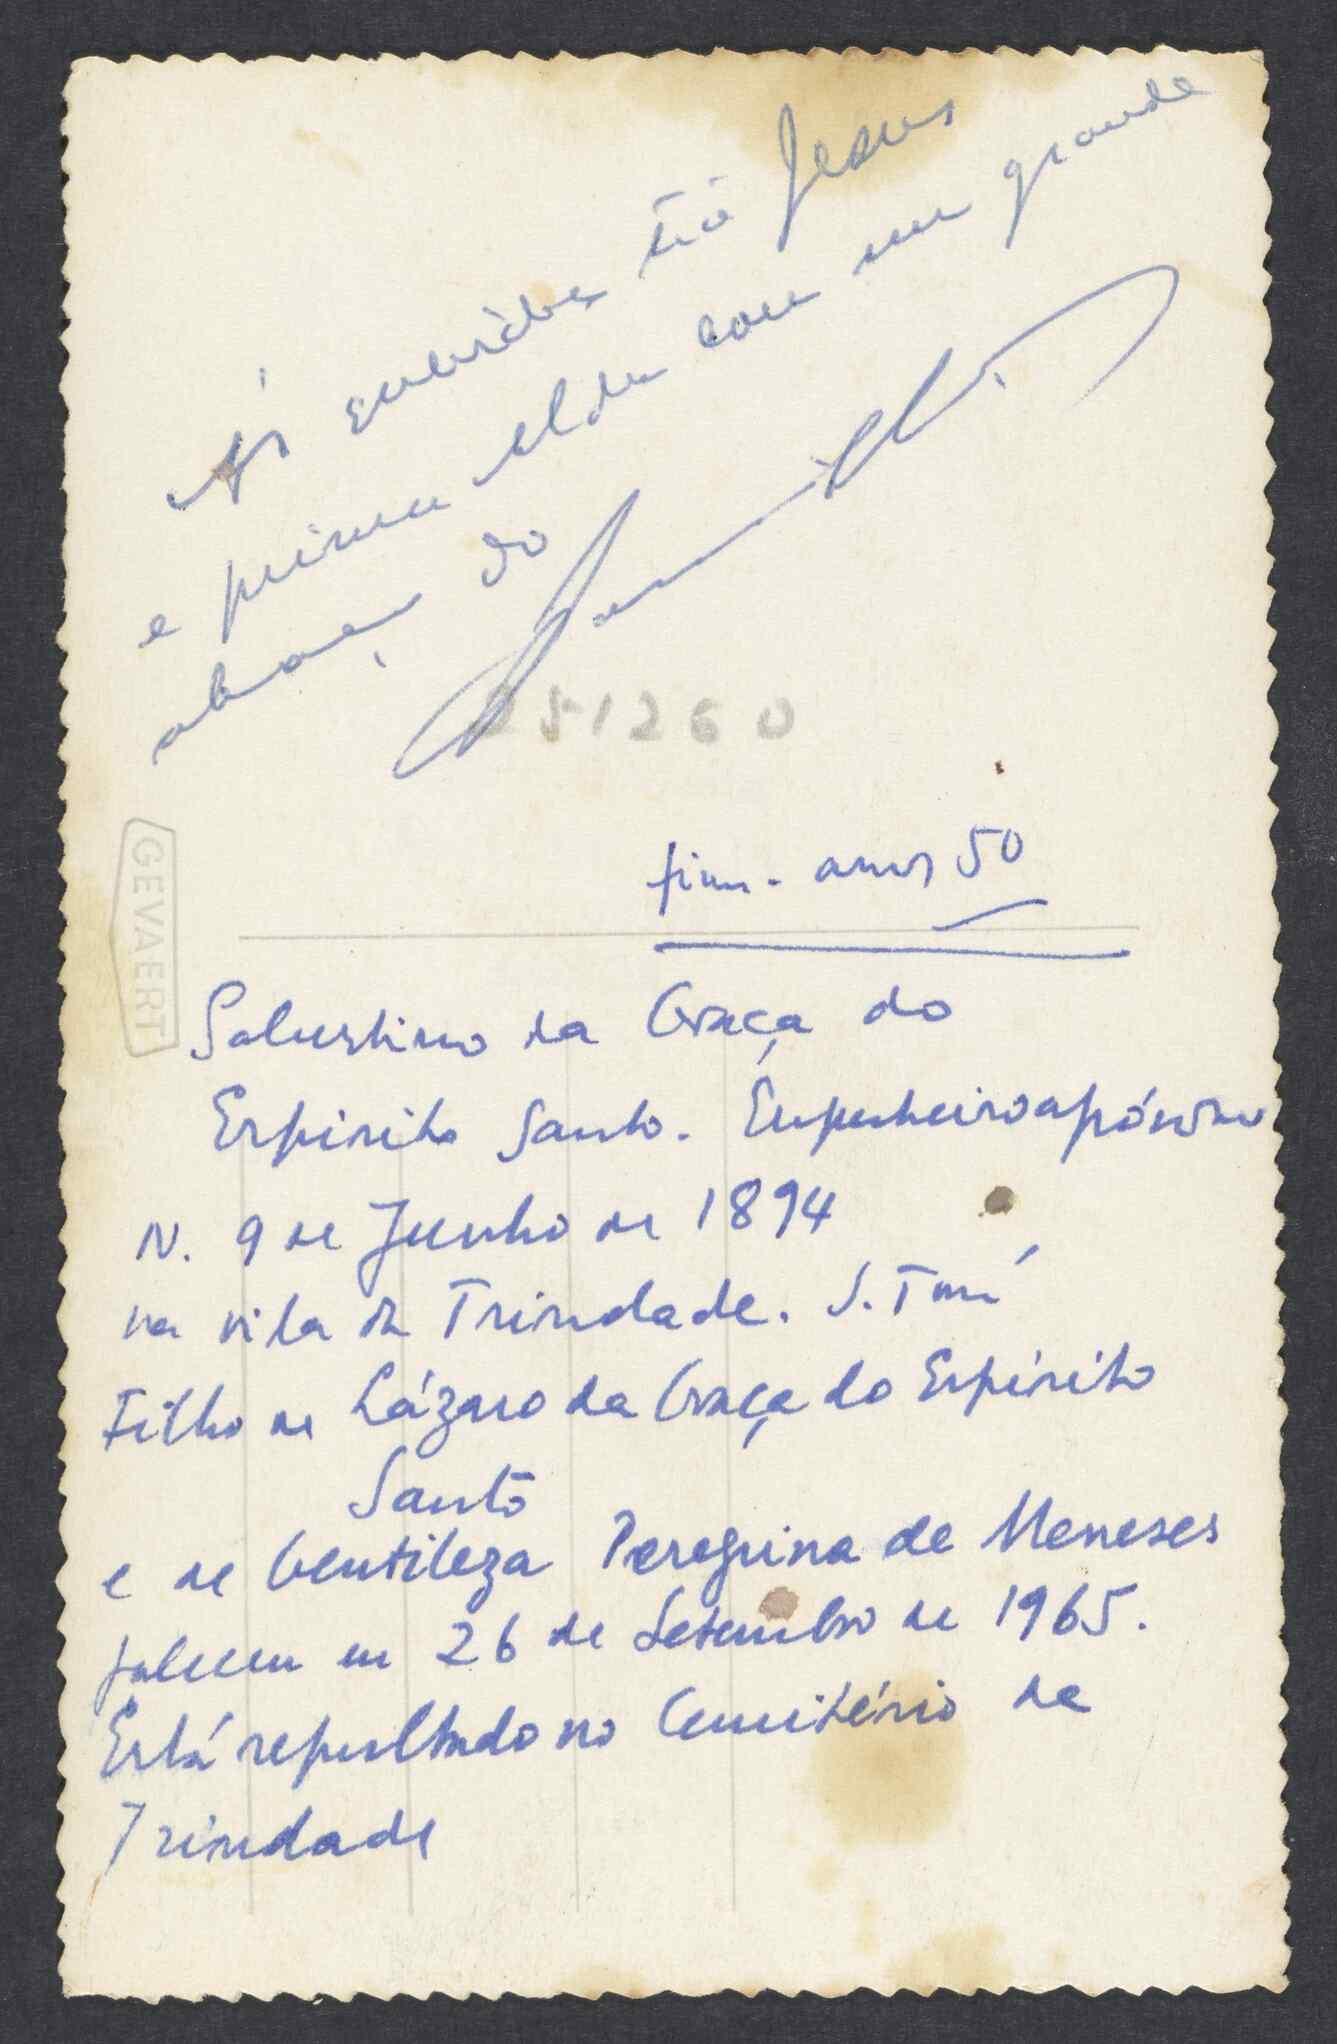 Às queridas tia Jesus
e prima Alda com um grande
abraço do
251260
GEVAERT
fim. anos 50
Salustino da Graça do
Espirito Santo. Engenheiro agrónomo
N. 9 de Junho de 1894
na vila da Trindade. S. Tomé
Filho de Lázaro da Graça do Espírito
Santo
e de Gentileza Peregrina de Meneses
faleceu em 26 de Setembro de 1965.
Está sepultado no Cemitério de
Trindade